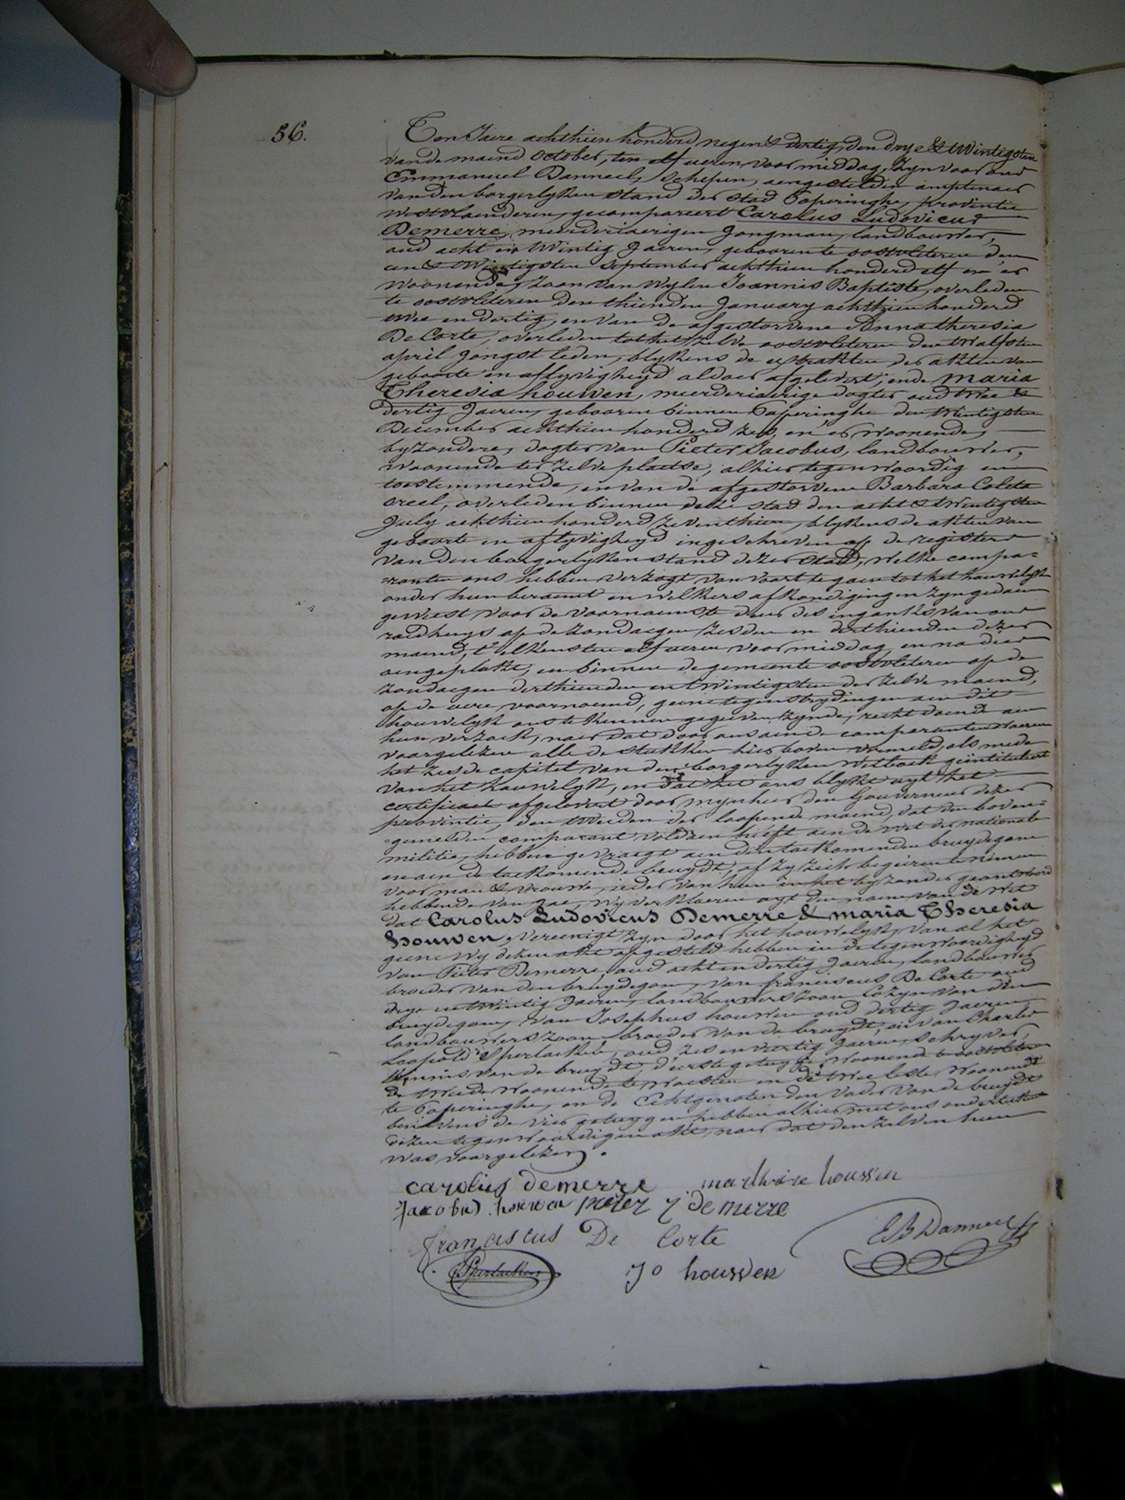 56.
Ten Jaere achthien honderd negen & dertig, den drye & twintigsten
van de maend October, ten elf ueren voor middag, zyn voor ons
Emmanuel Danneel, schepen, aengestelden amptenaer
van den borgerlyken stand der stad Poperinghe, provintie
Westvlaenderen, gecompareert Carolus Ludovicus
Demerre, meerderjaerigen Jongman, landbouwer,
oud acht en twintig Jaeren, geboren te oostvleteren den
een & twintigsten September achthien honderd elf en er
woonende, zoon van wylen Joannes Baptiste, overleden
te oostvleteren den thienden January achthien honderd
twee en dertig, en van de afgestorvene Anna theresia
De Corte, overleden tot het zelve oostvleteren den twalfsten
april Jongst leden, blykens de extrakten der akten van
geboorte en aflyvigheyd aldaer afgelevert; ende Maria
Theresia houwen, meerderjaerige dogter oud twee &
dertig Jaeren, geboren binnen Poperinghe den twintigsten
December achthien honderd zes, en er woonende,
byzondere, dogter van Pieter Jacobus, landbouwer,
woonende ter zelve plaetse, alhier tegenwoordig en
toestemmende, en van de afgestorvene Barbara Coleta
creel, overleden binnen deze stad den acht & twintigsten
July achthien honderd zeventhien, blykens de akten van
geboorte en aflyvigheyd ingeschreven op de registers
van den borgerlyken stand dezer stad, welke compa-
ranten ons hebben verzogt van voort te gaen tot het houwelyk
onder hun beraemt en welkers afkondigingen zyn gedaen
geweest voor de voornaemste deur des ingangs van ons
raedhuys op de zondaegen zesden en derthienden dezer
maend, t'elkensten elf ueren voor middag, en na dien
aengeplakt, en binnen de gemeente oostvleteren op de
zondaegen derthienden en twintigsten der zelve maend,
op de uere voornoemd, geene tegenstrydingen aen dit
houwelyk ons te kennen gegeven zynde, recht doende aen
hun verzoek, naer dat door ons aen de comparanten waeren
voorgelezen alle de stukken hier boven vermeld, als mede
het zesde capitel van den borgerlyken wetboek geïntituleert
van het houwelyk, en dat het ons blykt uyt het
certificaet afgelevert door mynheer den Gouverneur dezer
provintie, den tweeden der loopende maend, dat den boven-
gemelden comparant voldaen heeft aen de wet der nationale
militie, hebben gevraegt aen den toekomenden bruydegom
en aen de toekomende bruydt, of zy zich begeeren te nemen
voor man & vrouwe, ieder van hun in het byzonder geantwoord
hebbende van jae, wy verklaeren uyt den naem van de wet
dat Carolus Ludovicus Demerre & Maria Theresia
houwen, vereenigt zyn door het houwelyk, van al het
geene wy dezen akt opgesteld hebben in de tegenwoordigheyd
van Pieter Demerre, oud acht en dertig Jaeren, landbouwer
broeder van den bruydegom, van franciscus De Corte oud
drye en twintig Jaeren, landbouwers zoon Cozyn van den
bruydegom, van Josephus houwen oud dertig Jaeren,
landbouwers zoon, broeder van de bruydt, en van Charles
Leopold Sperlaeken, oud zes en veertig Jaeren, schryver,
kennis van de bruydt, d'eerste getuyge woonende te oostvleteren
de tweede woonende te woesten en de twee leste woonende
te Poperinghe, en de Echtgenoten den vader van de bruydt
benevens de vier getuygen hebben alhier met ons onderteekent
dezen tegenwoordigen akt, naer dat den zelven hun
was voorgelezen.
carolus demerre marthrese houwen
Jacobus houwen pieter J demerre
franciscus De Corte EB Danneel
Sperlaeken Jo houwen